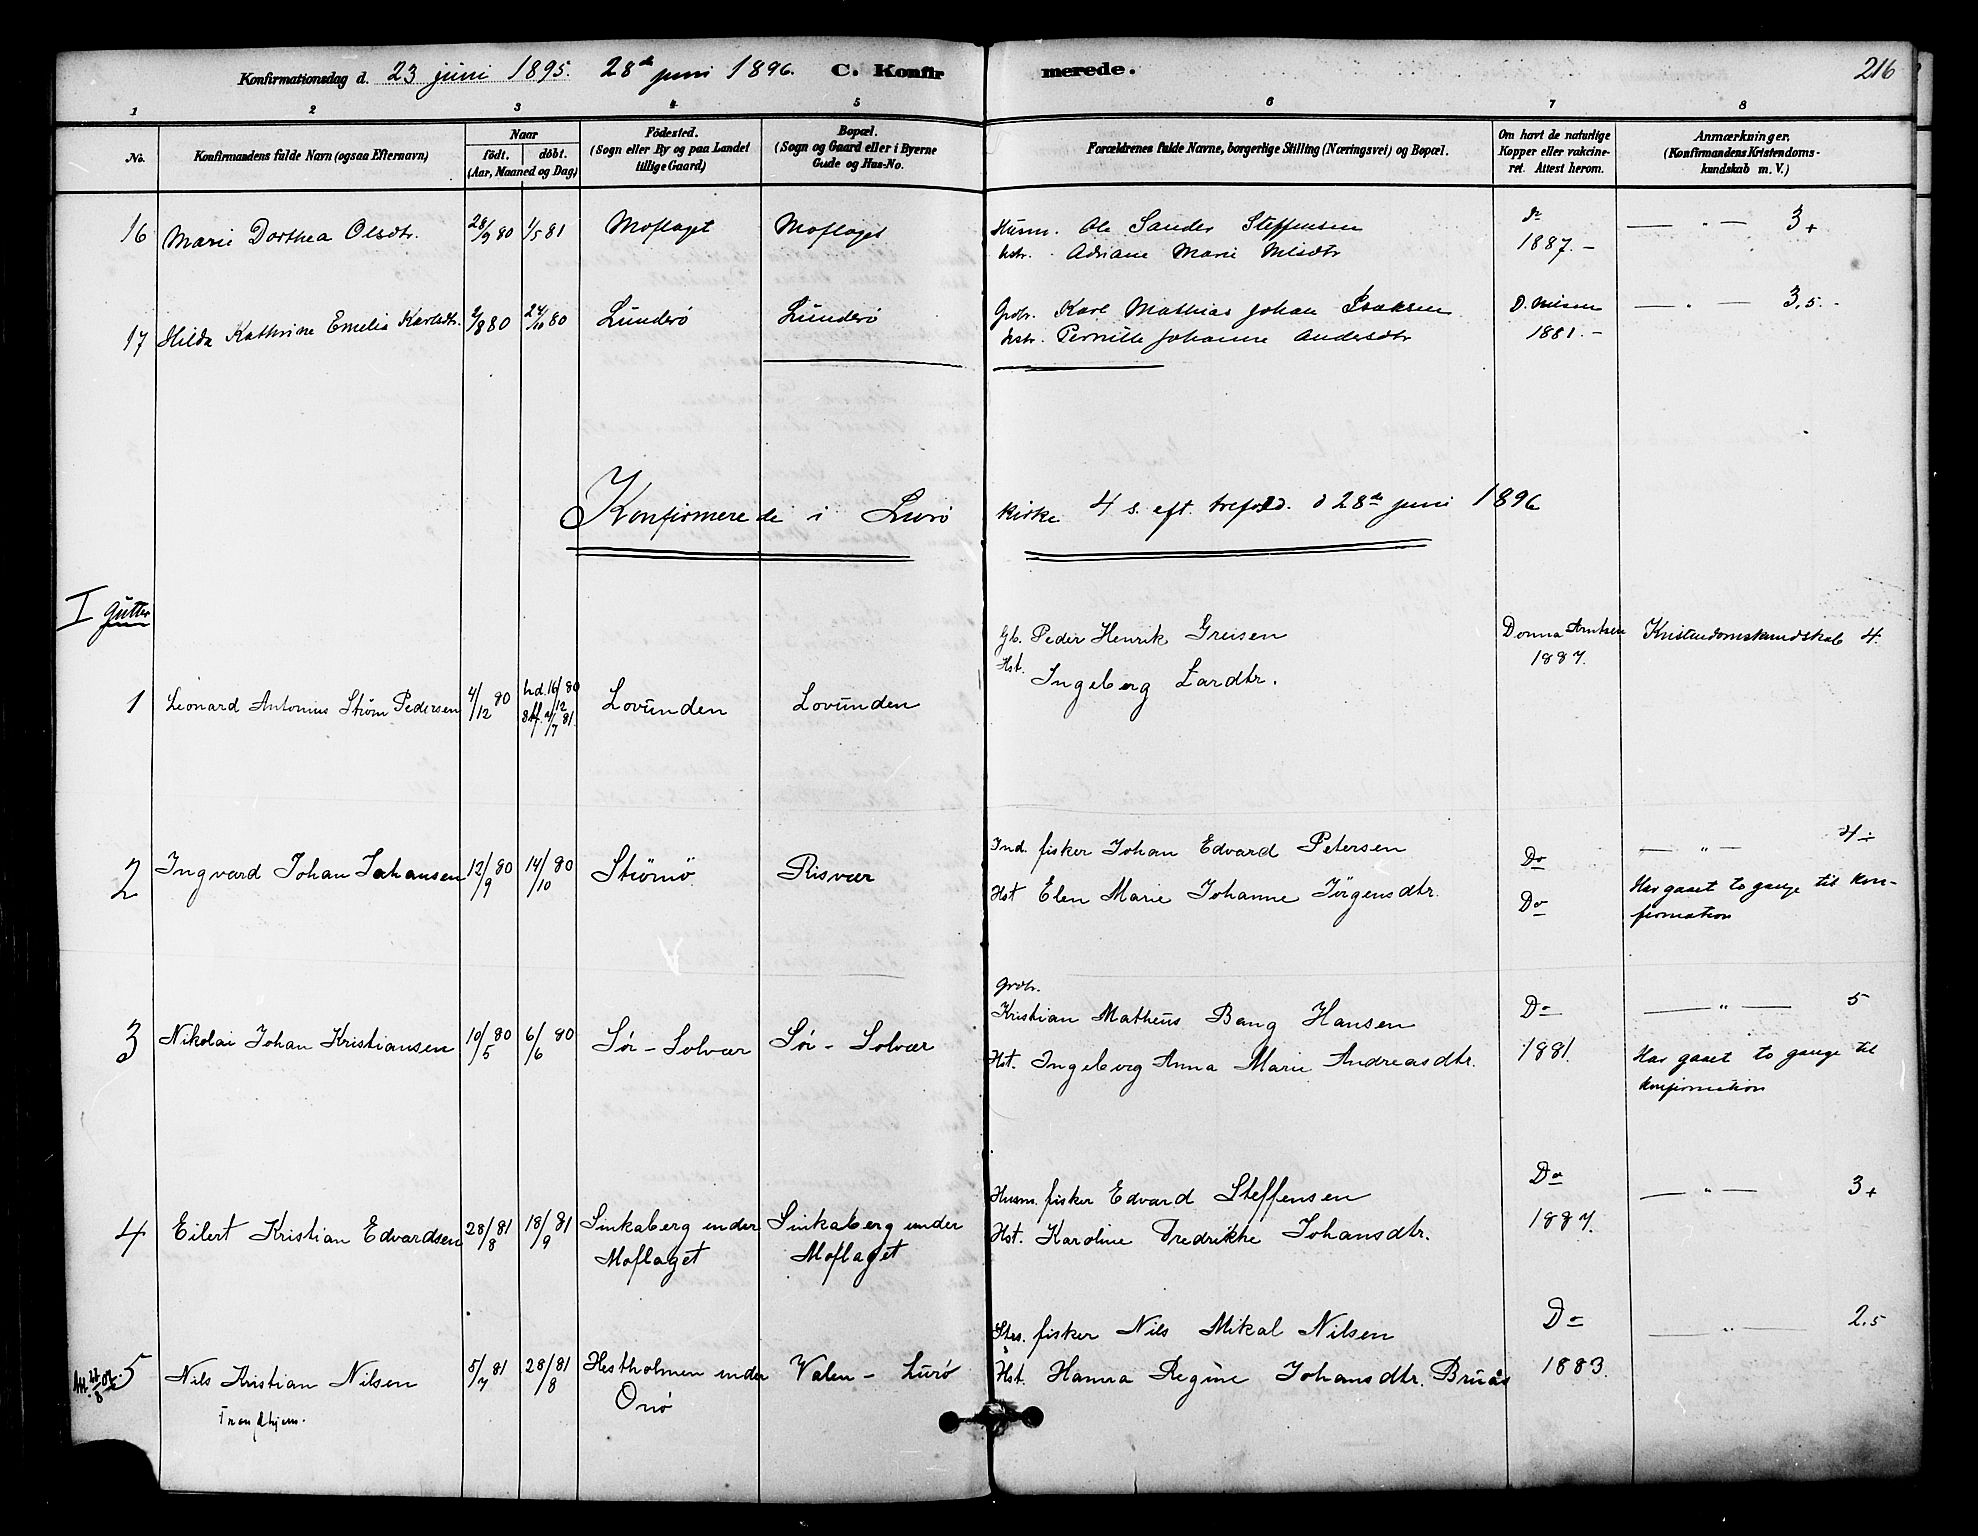 Konfirmationsdag d. 23 juni 1895. 28de juni 1896. C. Konfirmerede. 216
1 2 3 4 5 6 7 8
No. Konfirmandens fulde Navn (ogsaa Efternavn) Naar født. døbt. (Aar, Maaned og Dag) Födested. (Sogn eller By og paa Landet tillige Gaard) Bopæl. (Sogn og Gaard eller i Byerne Gade og Hus-No. Forældrenes fulde Navne, borgerlige Stilling (Næringsvei) og Bopæl. Om havt de naturlige Kopper eller vakcineret. Attest herom. Anmærkninger. (Konfirmandens Kristendomskundskab m. V.)
16 Marie Dorthea Olsdtr. 28/9 80 1/5 81 Moflaget Moflaget Husm. Ole Sander Steffensen do — " — 3+
hstr. Adriane Marie Nilsdtr 1887. —
17 Hilda Kathrine Emelia Karlsdtr. 2/8 80 24/10 80 Lunderö Lunderö Grdbr. Karl Mathias Johan Isaksen D. Nilsen — " — 3,5.
hstr. Pernille Johanne Andersdtr 1881. —
Konfirmerede i Lurö kirke 4 s. eft. trefold. d 28de juni 1896
I Gutter
1 Leonard Antonius Strøm Pedersen 4/12 80 hd. 16/12 80 Lovunden Lovunden Gb. Peder Henrik Greisen Donna Arntsen Kristendomskundskab 4.
Hst. Ingeborg Lardtr. 1887.
2 Ingvard Johan Johansen 12/9 80 14/10 80 Strömö Risvær Ind. fisker Johan Edvard Petersen Do — " — 4÷
Hst Elen Marie Johanne Jörgensdtr. Do Har gaaet to gange til konfirmation
3 Nikolai Johan Kristiansen 10/5 80 6/6 80 Sör-Solvær Sör-Solvær grdbr. Kristian Matheus Bang Hansen Do — " — 5
Hst. Ingeborg Anna Marie Andreasdtr. 1881. Har gaaet to gange til konfirmation
4 Eilert Kristian Edvardsen 28/8 81 18/9 81 Sinkaberg under Moflaget Sinkaberg under Moflaget Husm. fisker Edvard Steffensen Do — " — 3+
Hst. Karoline Fredrikke Johansdtr. 1887.
5 Nils Kristian Nilsen 5/7 81 28/8 81 Hestholmen under Onö Valen - Lurö fisker Nils Mikal Nilsen Do — " — 2,5
Trondhjem. Hst. Hanna Regine Johansdtr. Bruås 1883.